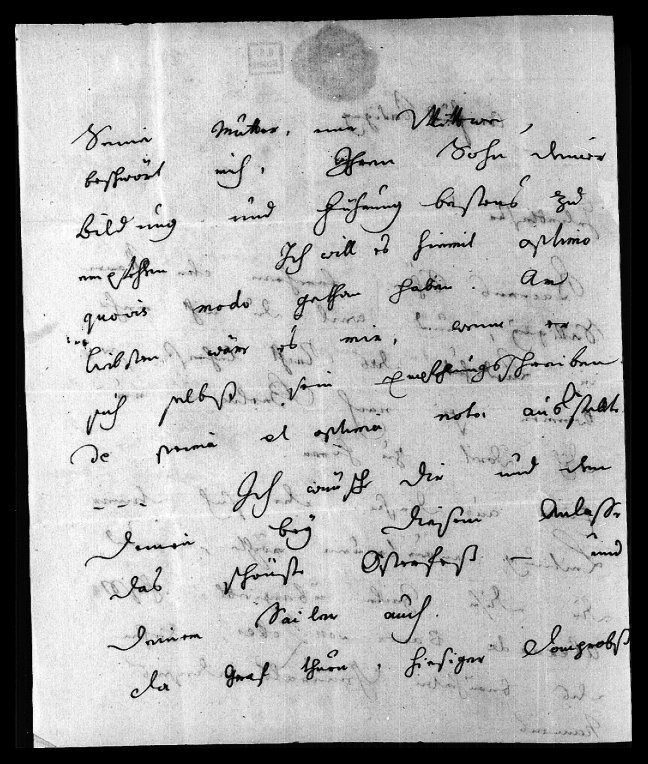 Seine Mutter, eine Wittwe,
beschwört mich, Ihren Sohn deiner
Bildung und Führung bestens zu
empfehlen. Ich will es hiemit optimo
quovis modo gethan haben. Am
liebsten wäre es mir, wenn er
sich selbst sein Empfehlungsschreiben
de prima et optima nota ausstellt.
Ich wünsche Dir und den
Deinen bey diesem Anlasse
das schönste Osterfest — und
Deinem Sailer auch.
Graf Thurn, hiesiger Domprobst